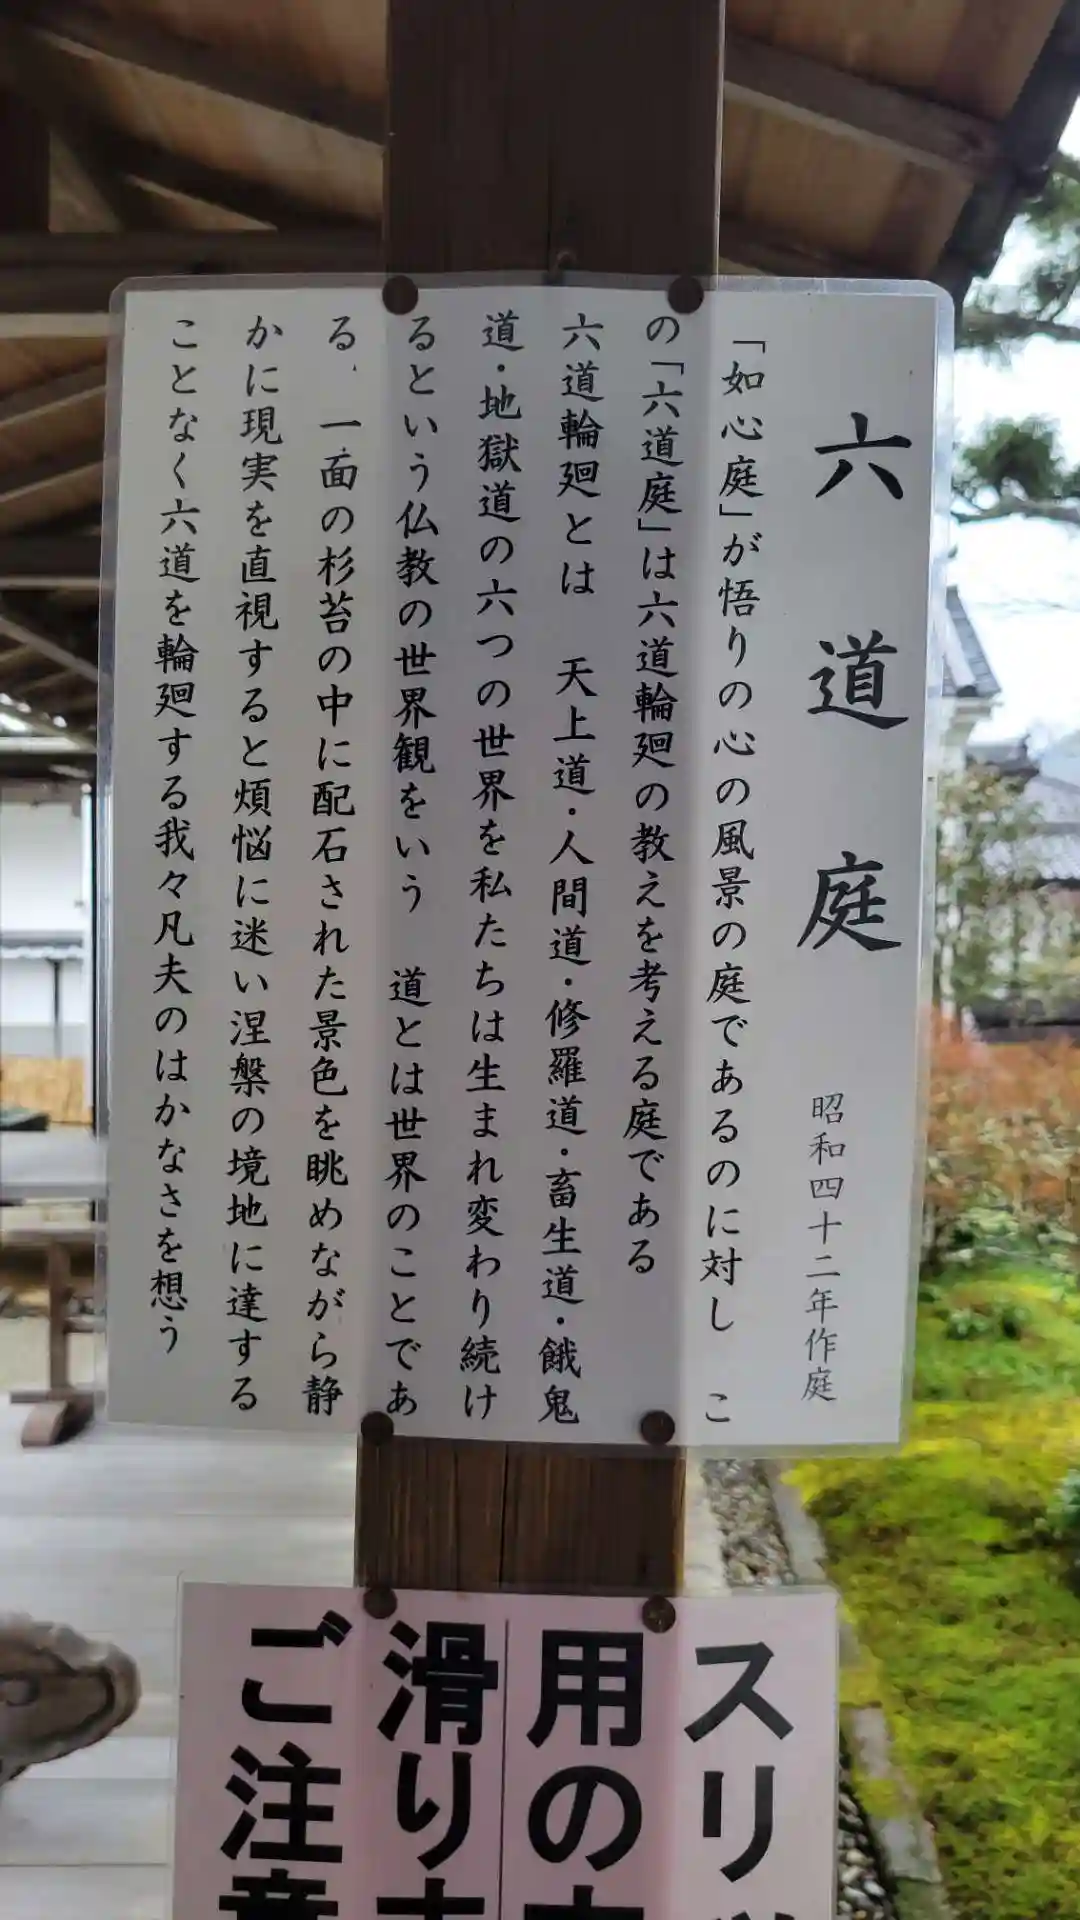 六道庭
昭和四十二年作庭
「如心庭」が悟りの心の風景の庭であるのに対し　こ
の「六道庭」は六道輪廻の教えを考える庭である
六道輪廻とは　天上道・人間道・修羅道・畜生道・餓鬼
道・地獄道の六つの世界を私たちは生まれ変わり続け
るという仏教の世界観をいう　道とは世界のことであ
る．一面の杉苔の中に配石された景色を眺めながら静
かに現実を直視すると煩悩に迷い涅槃の境地に達する
ことなく六道を輪廻する我々凡夫のはかなさを想う
スリッ
用の
滑り
ご注意